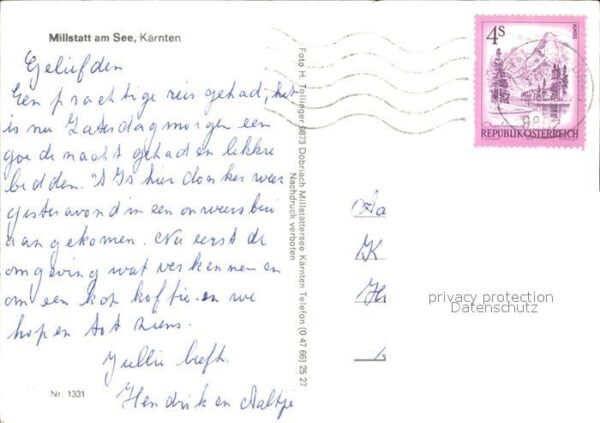 Millstatt am See, Kärnten
Geliefden
Een prachtige reis gehad, het
is nu Zaterdagmorgen een
goede nacht gehad en lekkre
bedden. 't Is hier donker weer
gisteravond in een onweersbui
aangekomen. Nu eerst de
omgeving wat verkennen en
om een kop koffie en we
hopen tot ziens.
Jullie liefh.
Hendrik en Aaltje
Nr. 1331
Foto H. Tollinger 9873 Döbriach Millstättersee Kärnten Telefon (0 47 66) 25 27
Nachdruck verboten
4S
AMSEE
REPUBLIK ÖSTERREICH
Aa
K
H
privacy protection
Datenschutz